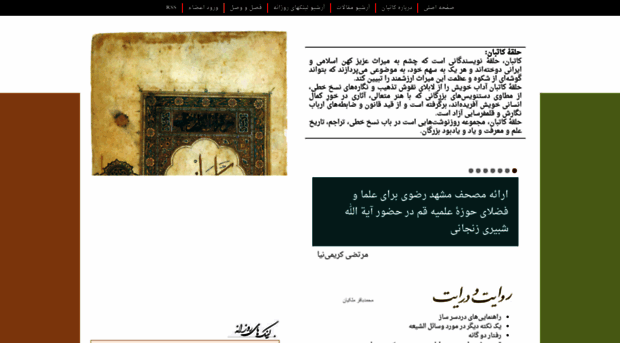 صفحه اصلی | درباره کاتبان | آرشیو مقالات | آرشیو لینکهای روزانه | فصل و وصل | ورود اعضاء | RSS
حلقهٔ کاتبان:
کاتبان، حلقهٔ نویسندگانی است که چشم به میراث عزیز کهن اسلامی و
ایرانی دوخته‌اند و هر یک به سهم خود، به موضوعی می‌پردازند که بتواند
گوشه‌ای از شکوه و عظمت این میراث ارزشمند را تبیین کند.
حلقهٔ کاتبان آداب خویش را از لابلای نقوش تذهیب و نگاره‌های نسخ خطی،
از مطاوی دستنویس‌های بزرگانی که با هنر متعالی، آثاری در خور کمال
انسانی خویش آفریده‌اند، برگرفته است و از قید قانون و ضابطه‌های ارباب
نگارش و قلمفرسایی آزاد است.
حلقهٔ کاتبان، مجموعه روزنوشت‌هایی است در باب نسخ خطی، تراجم، تاریخ
علم و معرفت و یاد و یادبود بزرگان.
ارائه مصحف مشهد رضوی برای علما و
فضلای حوزهٔ علمیه قم در حضور آیة الله
شبیری زنجانی
مرتضی کریمی‌نیا
روایت و درایت
محمدباقر ملکیان
راهنمایی‌های دردسر ساز
یک نکته دیگر در مورد وسائل الشیعه
رفتار دو گانه
لینک‌های روزانه